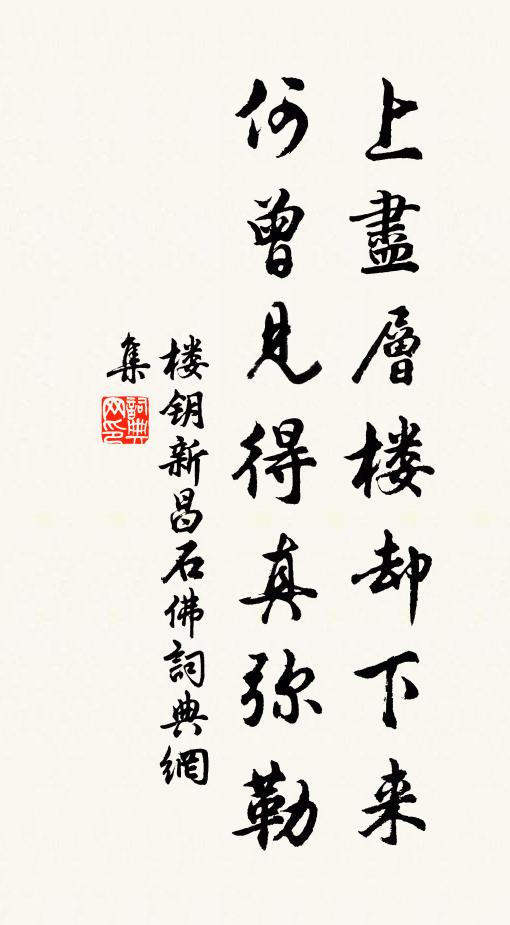 上盡層楼却下来
何曾見得真弥勒
楼钥新昌石佛詞典網
集
詞典网印